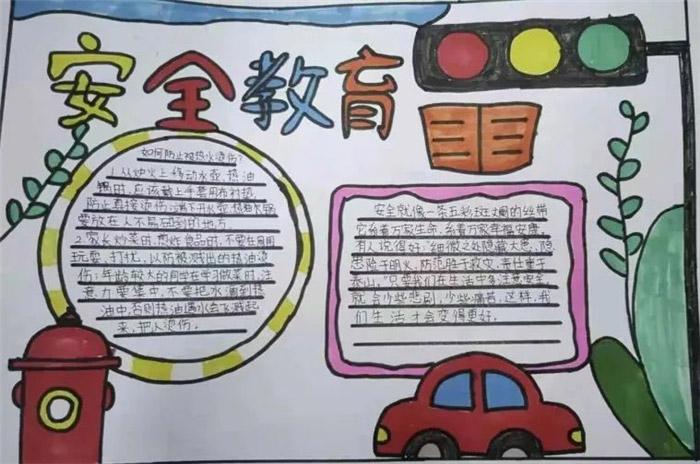 安全教育
如何防止被热水烫伤?
1.从炉火上移动水壶、热油
锅时,应该戴上手套用布衬热
防止直接烫伤;端下开水壶、热油锅
要放在人不易碰到的地方。
2.家长炒菜时、煎炸食品时,不要在周围
玩耍、打扰,以防被溅出的热油烫
伤;年龄较大的同学在学习做菜时,注
意力要集中,不要把水滴到热
油中,否则热油遇水会飞溅起
来,把人烫伤。
安全就像一条五彩斑斓的丝带
它系着万家生命,系着万家幸福安康。
有人说得好:细微之处隐藏大患,隐
患险于明火,防范胜于救灾,责任重于
泰山。"只要我们在生活中多注意安全
就会少些悲剧,少些痛苦,这样,我
们生活才会变得更好。